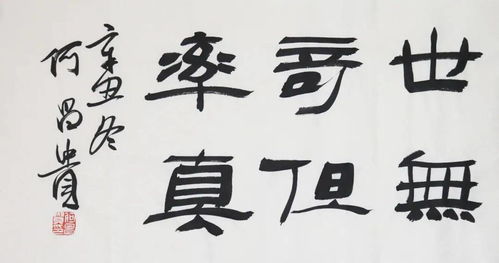 世無
竒但
率真
辛丑冬
何昌貴